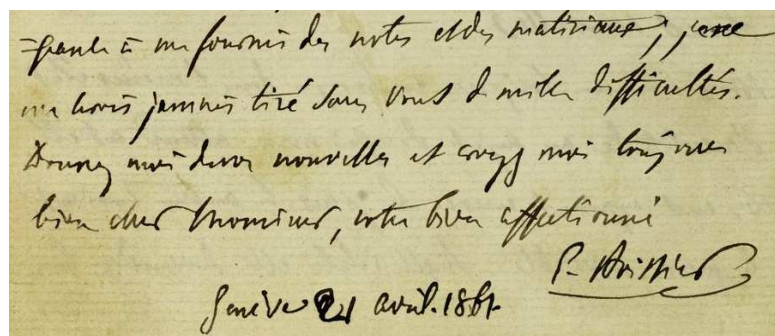 =geante à me fournir des notes et des matériaux; je ne
me serais jamais tiré sans vous de mille difficultés.
Donnez moi de vos nouvelles et croyez moi toujours
bien cher Monsieur, votre bien affectionné
Genève 21 avril. 1861.